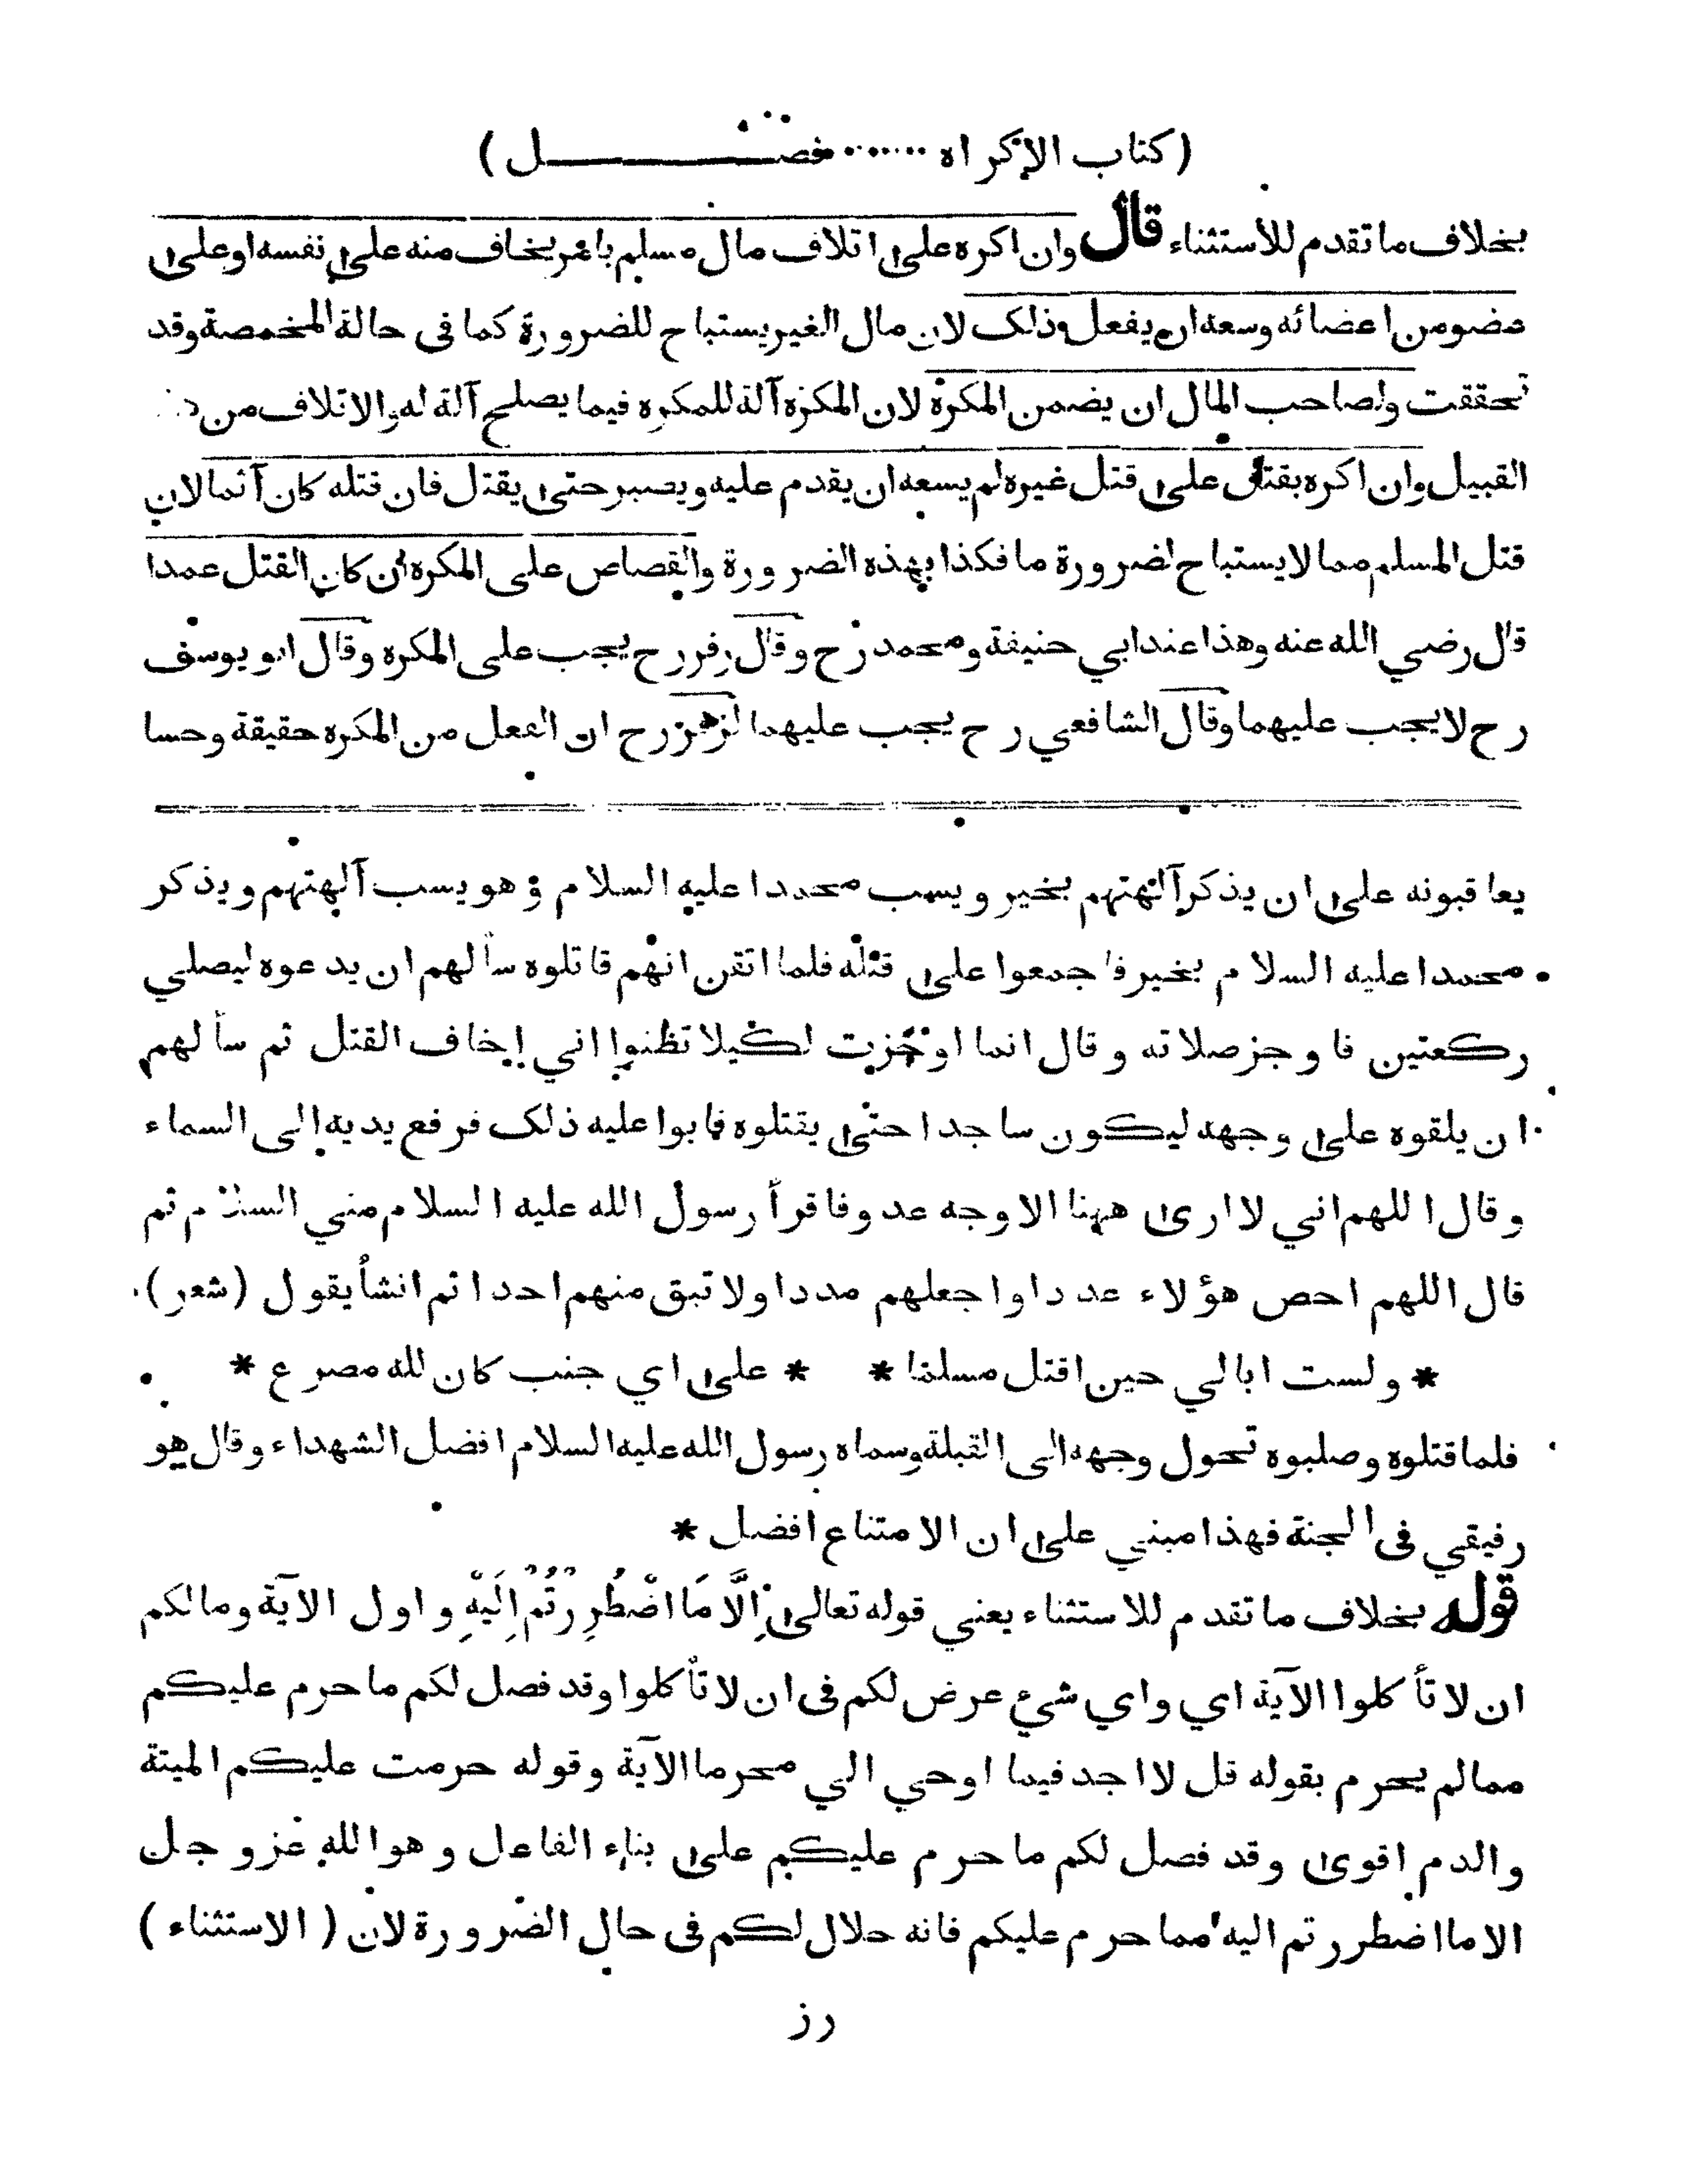 ( كتاب الإكراه ...... فصـــــل )
بخلاف ما تقدم للأستثناء قال وان اكره على اتلاف مال مسلم بامر يخاف منه على نفسه او على
عضو من اعضائه وسعه ان يفعل ذلك لان مال الغير يستباح للضرورة كما فى حالة المخمصة وقد
تحققت ولصاحب المال ان يضمن المكره لان المكره آلة للمكره فيما يصلح آلة له والاتلاف من
القبيل وان اكره بقتل على قتل غيره لم يسعه ان يقدم عليه ويصبر حتى يقتل فان قتله كان آثما لان
قتل المسلم مما لا يستباح لضرورة ما فكذا بهذه الضرورة والقصاص على المكره ان كان القتل عمدا
قال رضي الله عنه وهذا عند ابي حنيفة ومحمد رح وقال زفر رح يجب على المكره وقال ابو يوسف
رح لا يجب عليهما وقال الشافعي رح يجب عليهما لزفر رح ان الفعل من المكره حقيقة وحسا
يعاقبونه على ان يذكر آلهتهم بخير ويسب محمدا عليه السلام وهو يسب آلهتهم ويذكر
محمدا عليه السلام بخير فاجمعوا على قتله فلما اتقن انهم قاتلوه سألهم ان يدعوه ليصلي
ركعتين فاوجز صلاته وقال انما اوجزت لكيلا تظنوا اني اخاف القتل ثم سألهم
ان يلقوه على وجهه ليكون ساجدا حتى يقتلوه فابوا عليه ذلك فرفع يديه الى السماء
وقال اللهم اني لا ارى ههنا الا وجه عدو فاقرأ رسول الله عليه السلام مني السلام ثم
قال اللهم احص هؤلاء عددا واجعلهم مددا ولا تبق منهم احدا ثم انشأ يقول ( شعر )
* ولست ابالي حين اقتل مسلما * * على اي جنب كان لله مصرع *
فلما قتلوه وصلبوه تحول وجهه الى القبلة وسماه رسول الله عليه السلام افضل الشهداء وقال هو
رفيقي فى الجنة فهذا مبني على ان الامتناع افضل *
قوله بخلاف ما تقدم للاستثناء يعني قوله تعالى إِلَّا مَا اضْطُرِرْتُمْ إِلَيْهِ واول الآية ومالكم
ان لا تأكلوا الآية اي واي شيء عرض لكم فى ان لا تأكلوا وقد فصل لكم ما حرم عليكم
مما لم يحرم بقوله قل لا اجد فيما اوحي الي محرما الآية وقوله حرمت عليكم الميتة
والدم اقوى وقد فصل لكم ما حرم عليكم على بناء الفاعل وهو الله عز وجل
الا ما اضطررتم اليه مما حرم عليكم فانه حلال لكم فى حال الضرورة لان ( الاستثناء )
رز